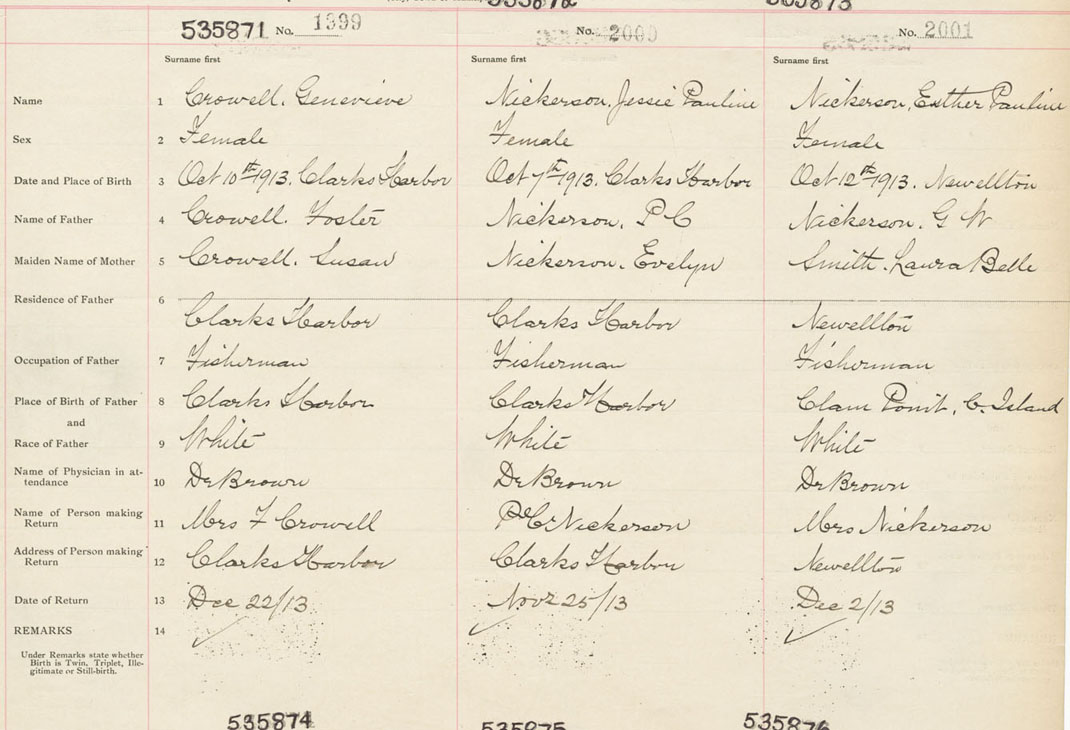 535871 No. 1399 No. 2000 No. 2001
Surname first Surname first Surname first
Name 1 Crowell. Genevieve Nickerson. Jessie Pauline Nickerson, Esther Pauline
Sex 2 Female Female Female
Date and Place of Birth 3 Oct 10th 1913. Clarks Harbor Oct 7th 1913. Clarks Harbor Oct 12th 1913. Newellton
Name of Father 4 Crowell. Foster Nickerson. P C Nickerson. G W
Maiden Name of Mother 5 Crowell. Susan Nickerson. Evelyn Smith. Laura Belle
Residence of Father 6
Clarks Harbor Clarks Harbor Newellton
Occupation of Father 7 Fisherman Fisherman Fisherman
Place of Birth of Father 8 Clarks Harbor Clarks Harbor Clam Point, C. Island
and
Race of Father 9 White White White
Name of Physician in at-
tendance 10 Dr Brown Dr Brown Dr Brown
Name of Person making
Return 11 Mrs F Crowell P C Nickerson Mrs Nickerson
Address of Person making
Return 12 Clarks Harbor Clarks Harbor Newellton
Date of Return 13 Dec 22/13 Nov 25/13 Dec 2/13
REMARKS 14
Under Remarks state whether
Birth is Twin, Triplet, Ille-
gitimate or Still-birth.
535874 535875 535876